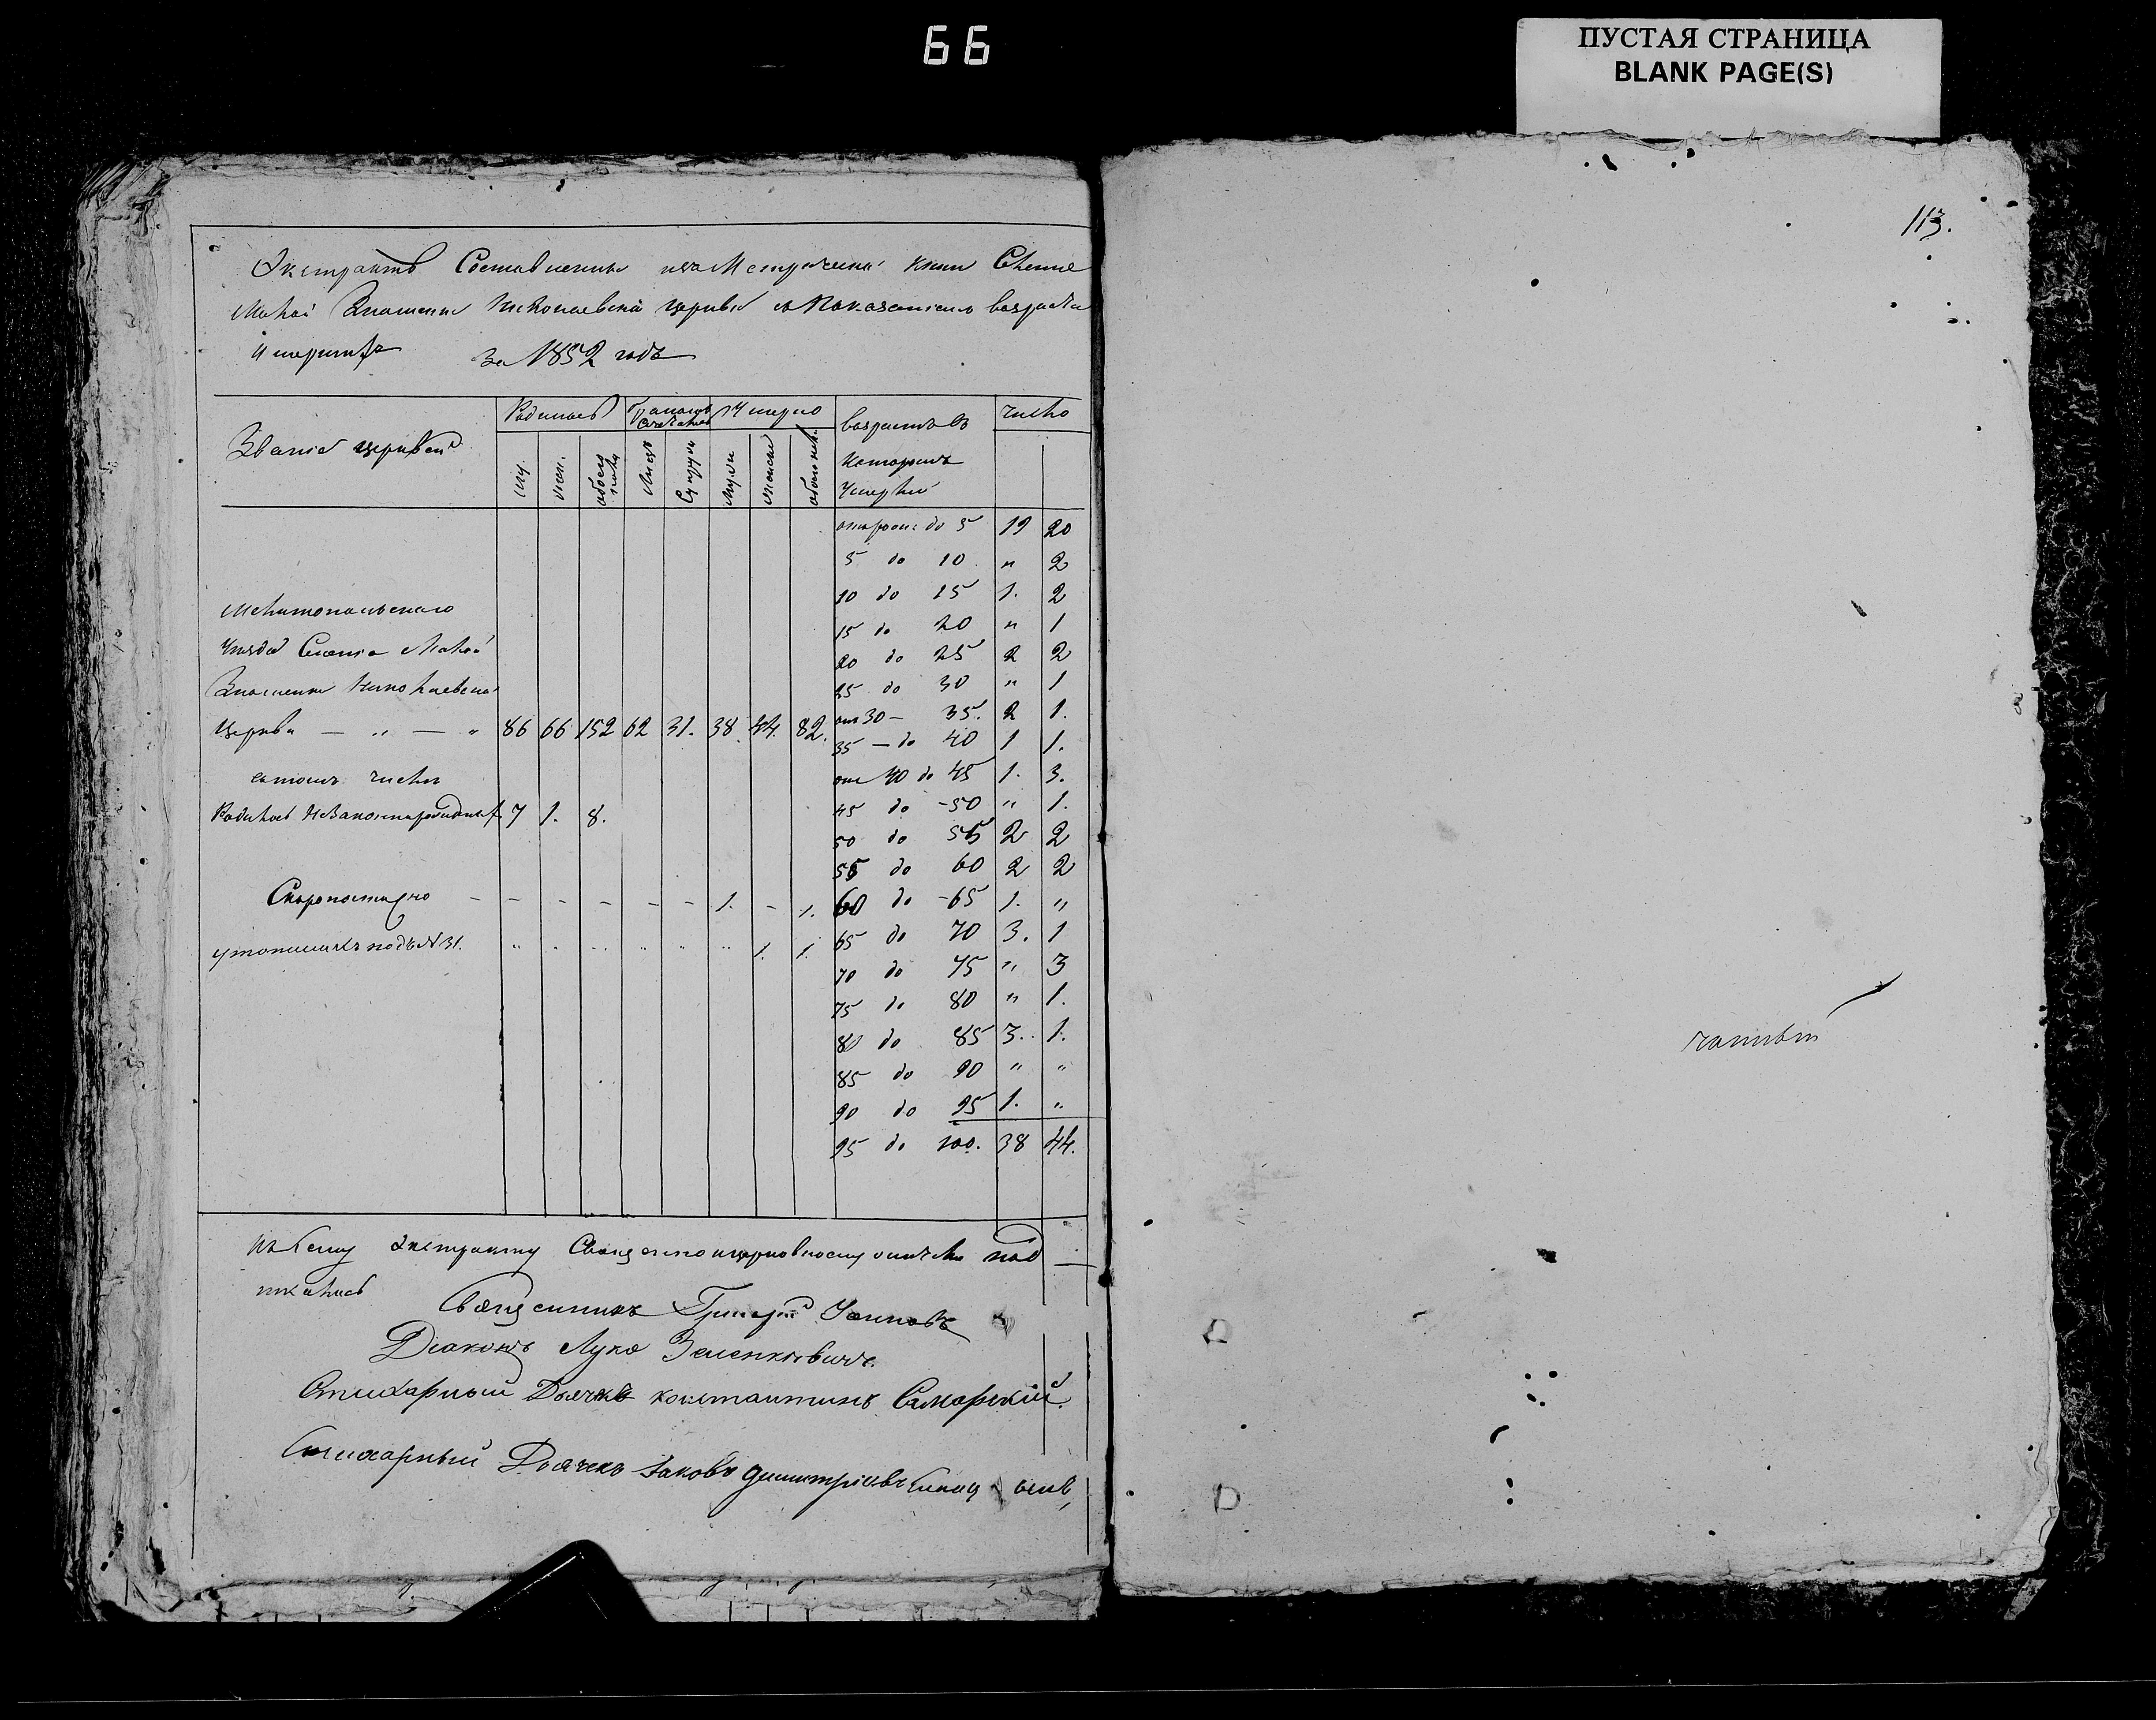 66
ПУСТАЯ СТРАНИЦА
BLANK PAGE(S)
113.
Экстрактъ Составленный изъ Метрической книги Селенія
Малой Знаменки Николаевской церкви съ Показаніемъ возраста
Умершихъ За 1852 годъ
Званіе церквей
Родилось Бракомъ Сочетано Умерло
возрастъ въ которомъ Умерли число
му. жен. обоего пола Лицъ Супруж мужи женск обоего пола
отъ рожд до 5 19 20
5 до 10 " 2
10 до 15 1. 2
15 до 20 " 1
20 до 25 2 2
25 до 30 " 1
отъ 30 – 35. 2 1.
35 – до 40 1 1.
отъ 40 до 45 1. 3.
45 до -50 " 1.
50 до 55 2 2
55 до 60 2 2
60 до -65 1. "
65 до 70 3. 1
70 до 75 " 3
75 до 80 " 1.
80 до 85 3. 1.
85 до 90 " "
90 до 95 1. "
95 до 100. 38 44.
Мелитопольскаго
Уезда Селенія Малой
Знаменки Николаевской
Церкви — " — " 86 66 152 62 31. 38 44. 82.
въ томъ числе
Родилось Незаконнорожденных 7 1. 8.
Скоропостижно - - - - - - 1. - 1.
утопшихъ подъ № 31. " " " " " " 1. 1.
Къ Сему Экстракту Священноцерковнослужители под
писались
Священникъ Григорій
Діаконъ Лука Зеленкевичъ.
Стихарный Дьячекъ константинъ Самарскій.
Стихарный Дьячекъ Іаковъ Димитріевъ